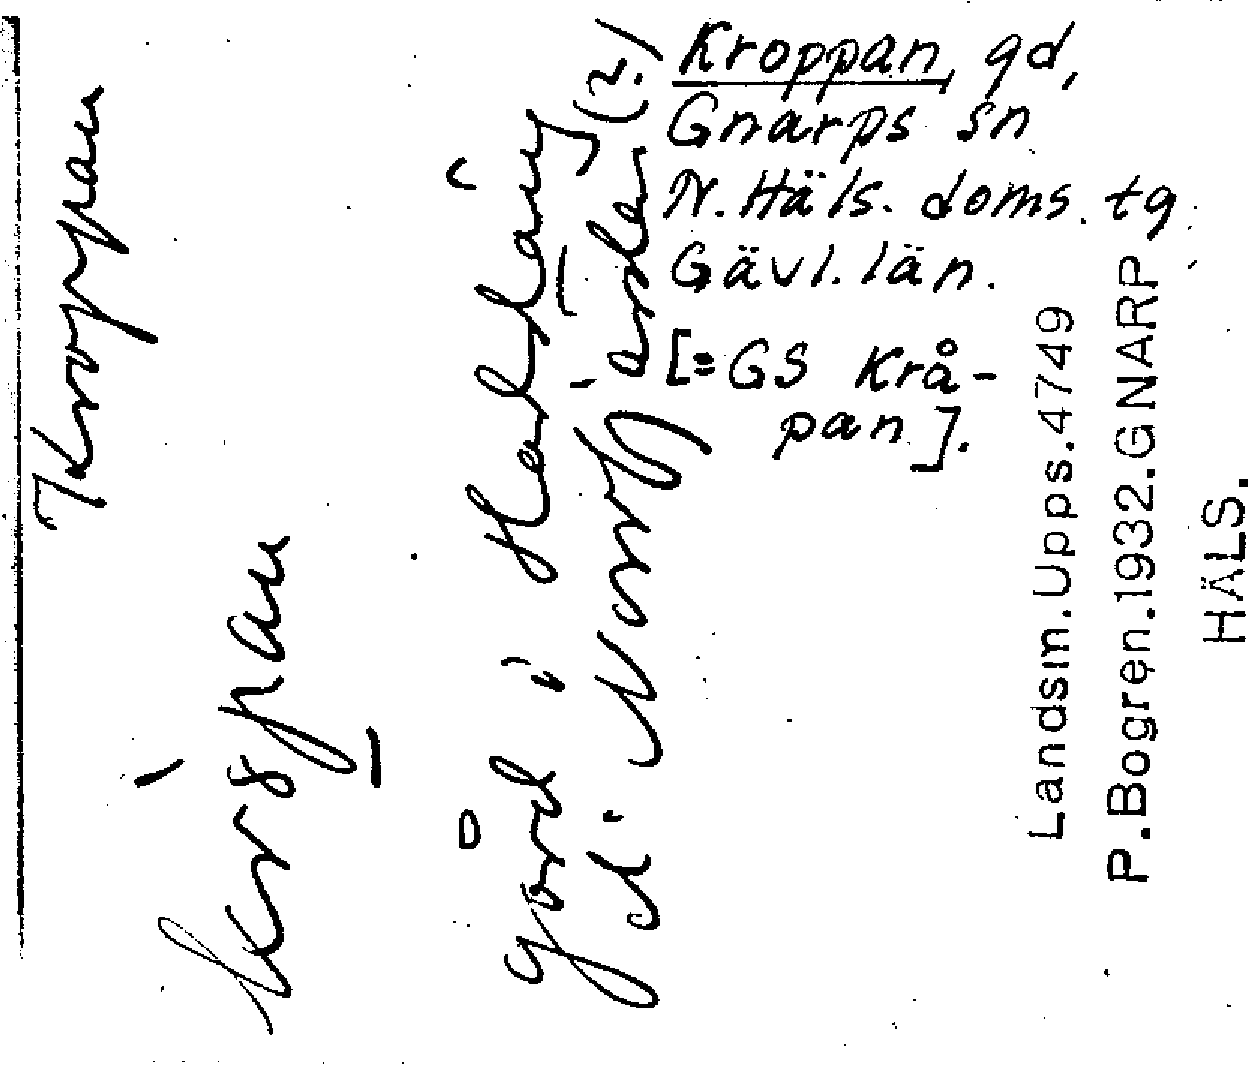 Kroppan, gd,
Gnarps sn
N. Häls. doms. tg
Gävl. län.
[= GS Krå-
pan].
Kroppan
gård i
i Norrf
Landsm. Upps. 4749
P. Bogren. 1932. GNARP
HÄLS.